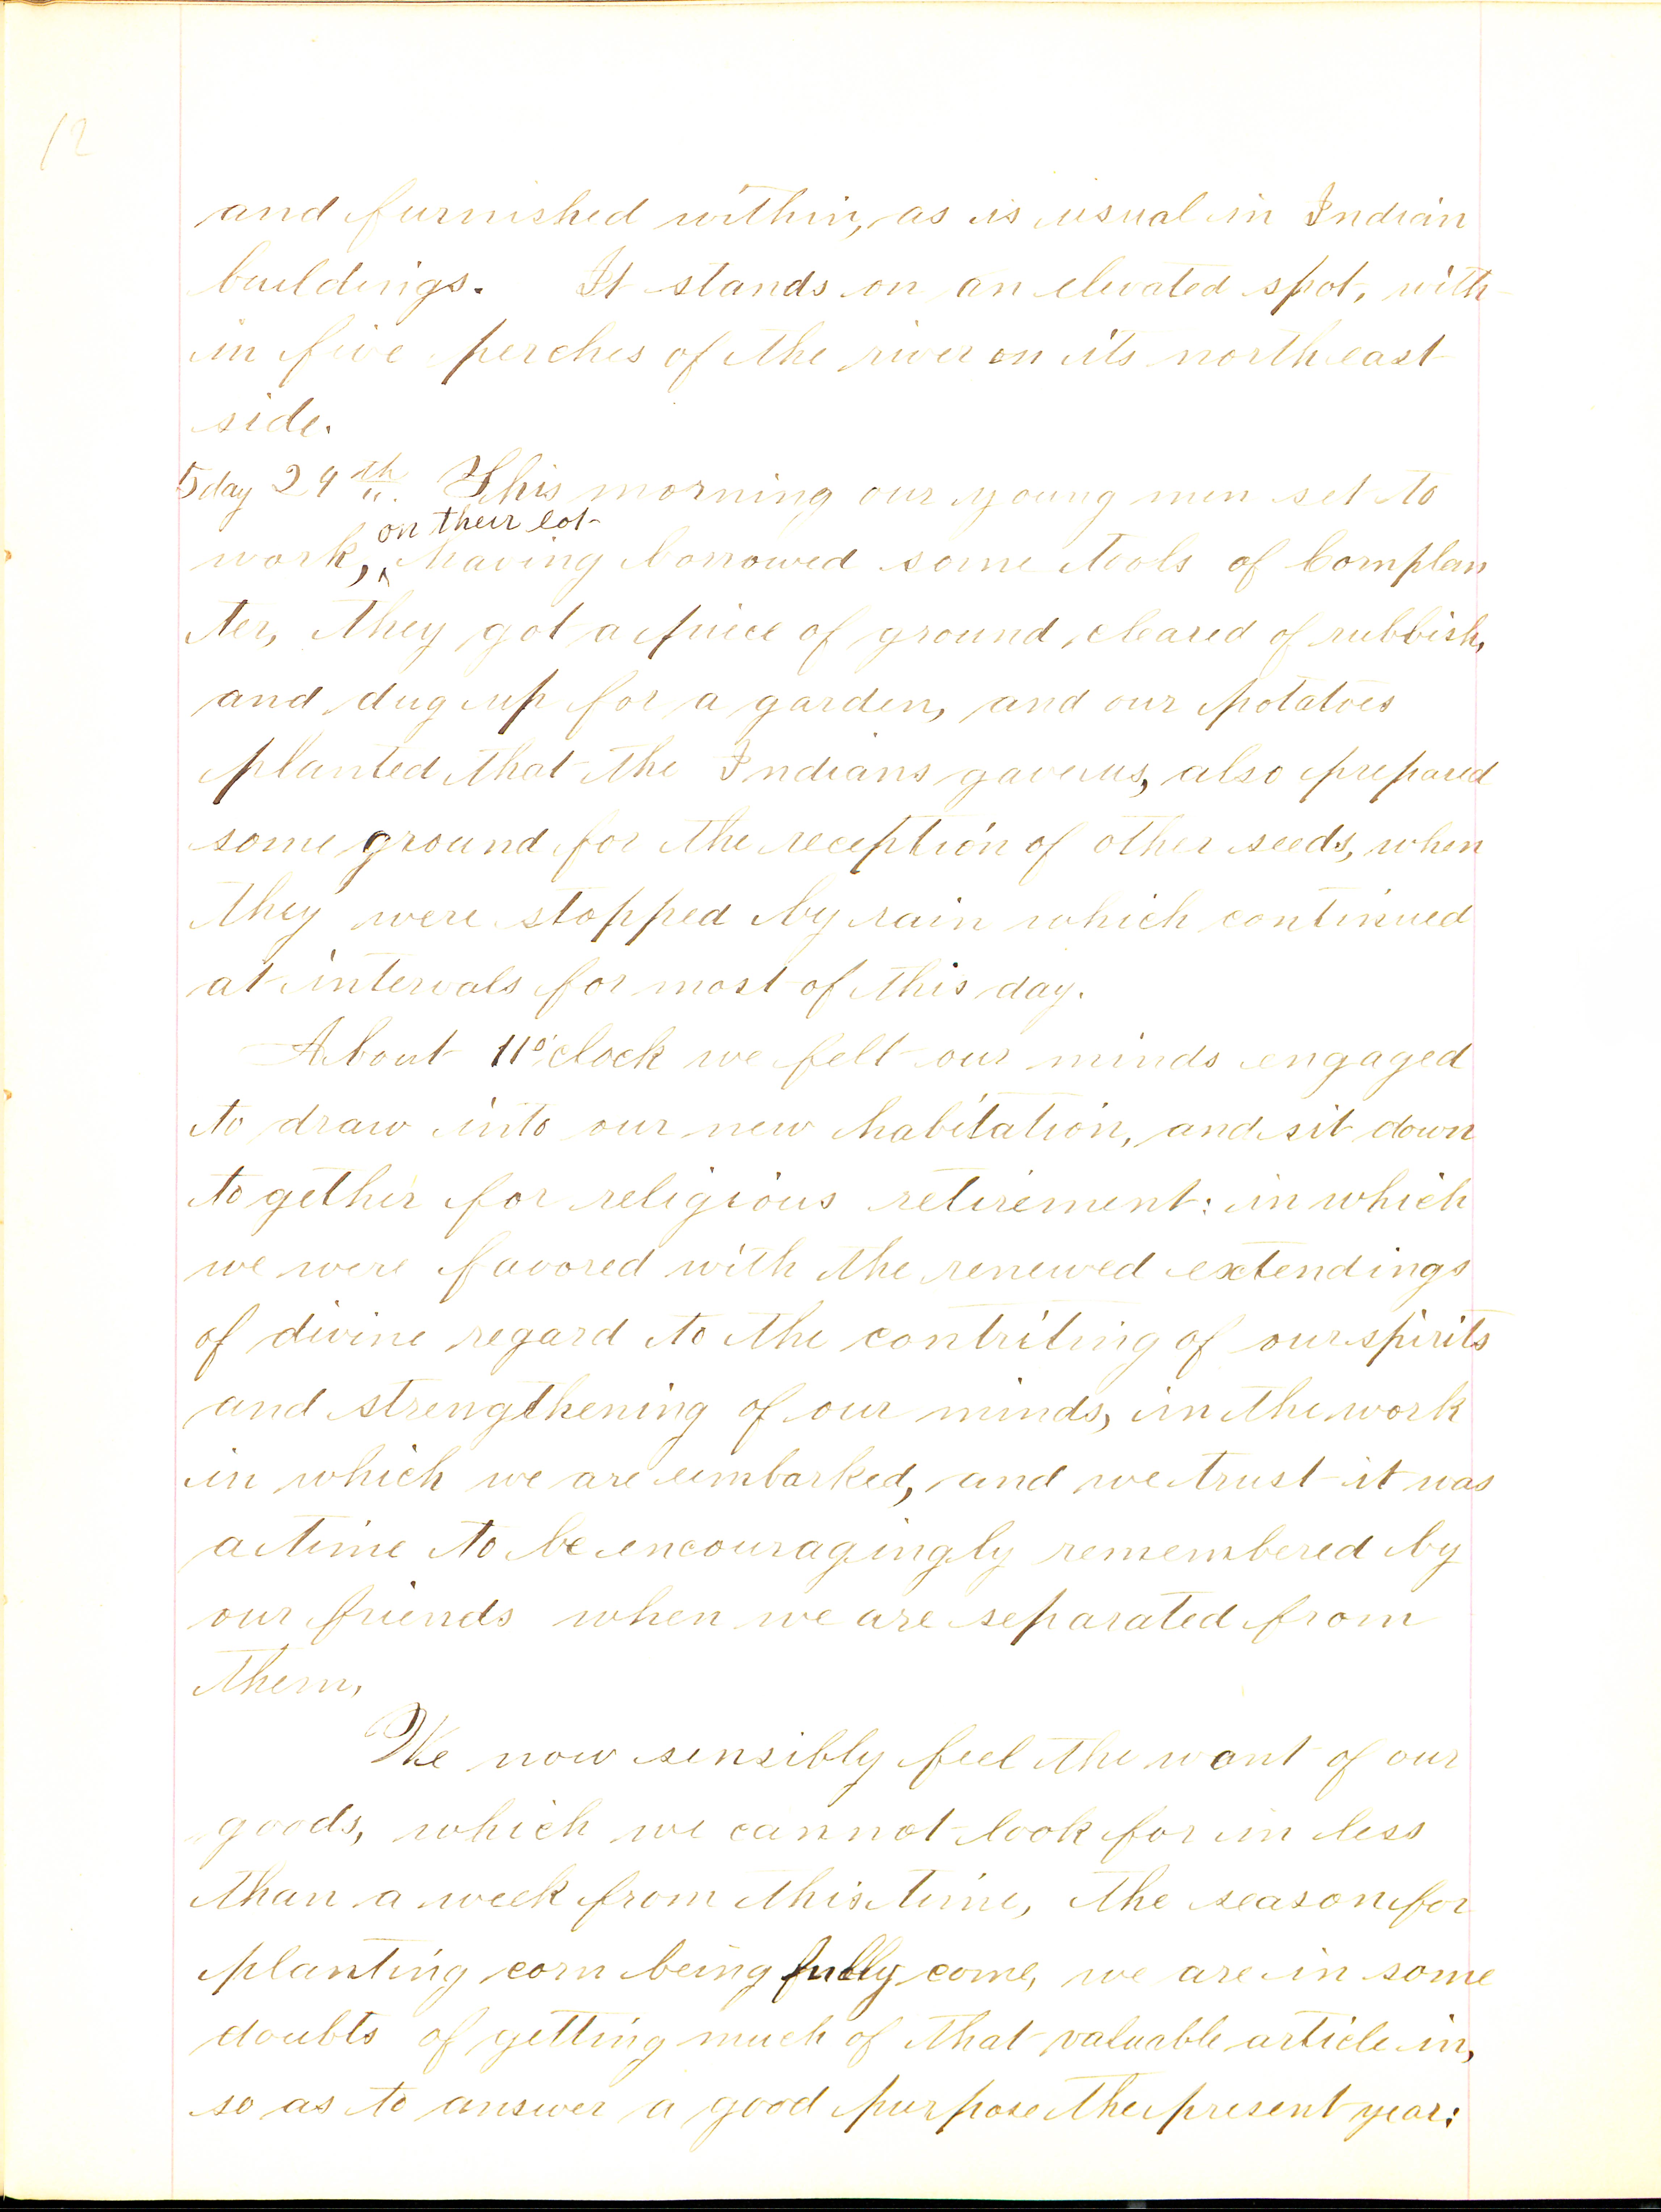 12
and furnished within, as is usual in Indian
buildings. It stands on an elevated spot, with-
in five perches of the river on its north east
side.
5 day 24th. This morning our young men set to
on their lot
work, ^ having borrowed some tools of Cornplan
ter, they got a piece of ground cleared of rubbish,
and dug up for a garden, and our potatoes
planted that the Indians gave us, also prepared
some ground for the reception of other seeds, when
they were stopped by rain which continued
at intervals for most of this day.
About 11 o'clock we felt our minds engaged
to draw into our new habitation, and sit down
together for religious retirement: in which
we were favored with the renewed extendings
of divine regard to the contriting of our spirits
and strengthening of our minds, in the work
in which we are embarked, and we trust it was
a time to be encouragingly remembered by
our friends when we are separated from
them,
We now sensibly feel the want of our
goods, which we cannot look for in less
than a week from this time, the season for
planting corn being fully come, we are in some
doubts of getting much of that valuable article in,
so as to answer a good purpose the present year: